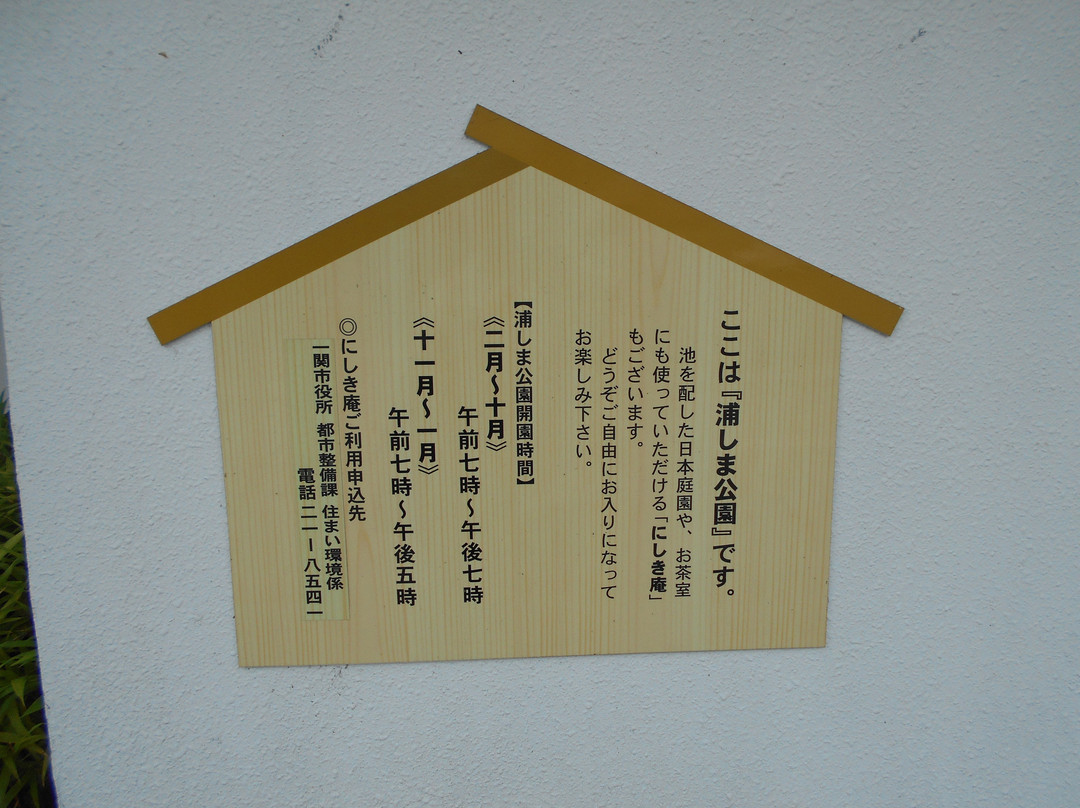 ここは『浦しま公園』です。
池を配した日本庭園や、お茶室
にも使っていただける「にしき庵」
もございます。
どうぞご自由にお入りになって
お楽しみ下さい。
【浦しま公園開園時間】
《二月〜十月》
午前七時〜午後七時
《十一月〜一月》
午前七時〜午後五時
◎にしき庵ご利用申込先
一関市役所 都市整備課 住まい環境係
電話 二一ー八五四一